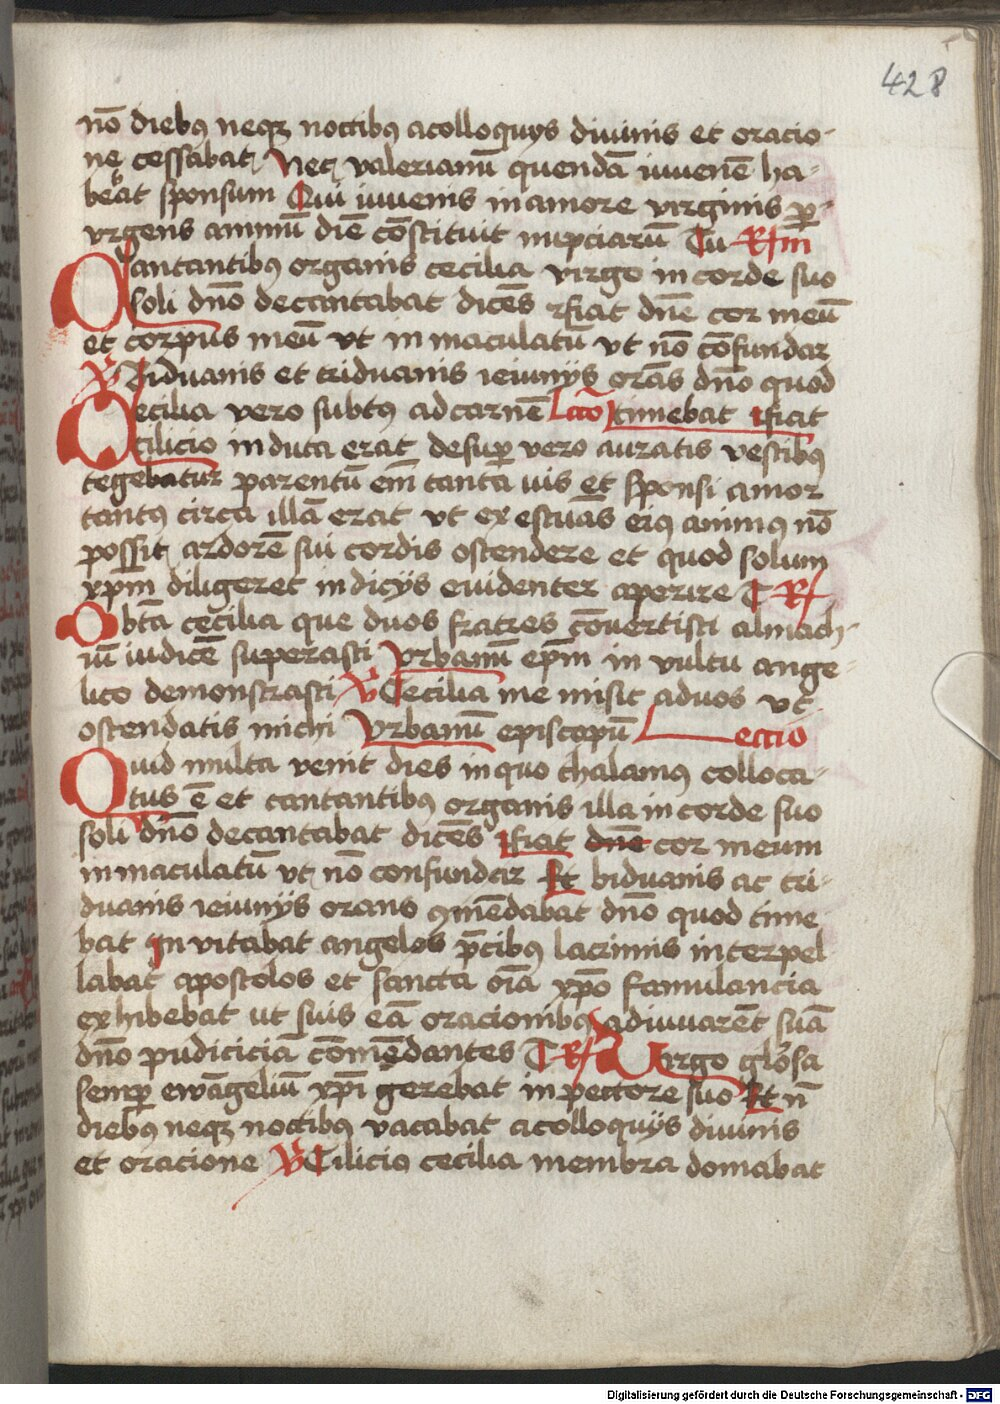 428
nō diebꝯ neqꝫ noctibꝯ acolloquys diuinis et oracio-
ne cessabat Nec valerianū quendā iuuenē ha-
bēat sponsum Qui iuuenis in amore virginis ꝑ-
vrgens animū diē cōstituit nupciarū Tu Rm
Cantantibꝯ organis cecilia virgo in corde suo
soli dnō decantabat dicēs fiat dnē cor meū
et corpus meū vt in maculatū vt nō cōfundar
V Biduanis et triduanis ieiunijs orās dnō quod
Cecilia vero subtꝯ ad carnē lccō timebat
cilicio in duta erat desuꝑ vero auratis vestibꝯ
tegebatur parentū em̄ tanta uis et sponsi amor
tantꝯ circa illā erat vt ex estuās eiꝯ animꝯ nō
possit ardorē sui cordis ostendere et quod solum
xpm diligeret in dicijs euidenter aperire T R
O btā cecilia que duos fratres cōuertisti almach-
iū iudicē superasti vrbanū epm̄ in vultu ange-
lico demonstrasti V Cecilia me misit aduos vt
ostendatis michi Vrbanū episcopū Lectio
Quid multa venit dies in quo thalamꝯ colloca-
tus ē et cantantibꝯ organis illa in corde suo
soli dn̄o decantabat dicēs fiat dnē cor meum
in maculatū vt nō confundar Et biduanis ac tri-
duanis ieiunijs orans ꝯmēdabat dnō quod time
bat In vitabat angelos p̄cibꝯ lacrimis interpel
labat apostolos et sancta oīa xpō famulancia
exhibebat ut suis eā oracionibꝯ adiuuarēt suā
dnō pudiciciā cōmēdantes T R Virgo glōsa
semꝑ ewāgeliū xpī gerebat in pectore suo Et n̄
diebꝯ neqꝫ noctibꝯ vacabat acolloquijs diuinis
et oracione V Cilicio cecilia membra domabat
Digitalisierung gefördert durch die Deutsche Forschungsgemeinschaft - DFG